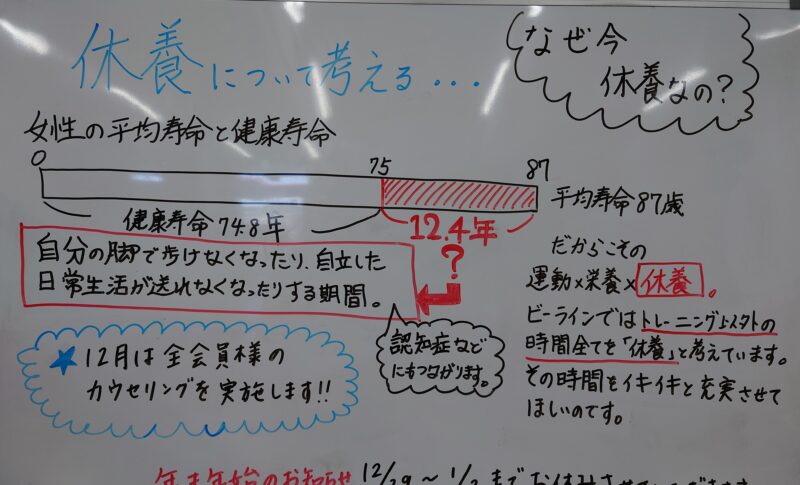 休養について考える・・・
なぜ今
休養なの?
女性の平均寿命と健康寿命
0 75 87
健康寿命 74.8年
12.4年
平均寿命87歳
?
自分の脚で歩けなくなったり、自立した
日常生活が送れなくなったりする期間。
認知症などに
にもつながります。
だからこその
運動×栄養×休養。
ビーラインではトレーニング以外の
時間全てを「休養」と考えています。
その時間をイキイキと充実させて
ほしいのです。
★12月は全会員様の
カウセリングを実施します!!
年末年始のお知らせ 12/29～1/3までお休みさせて